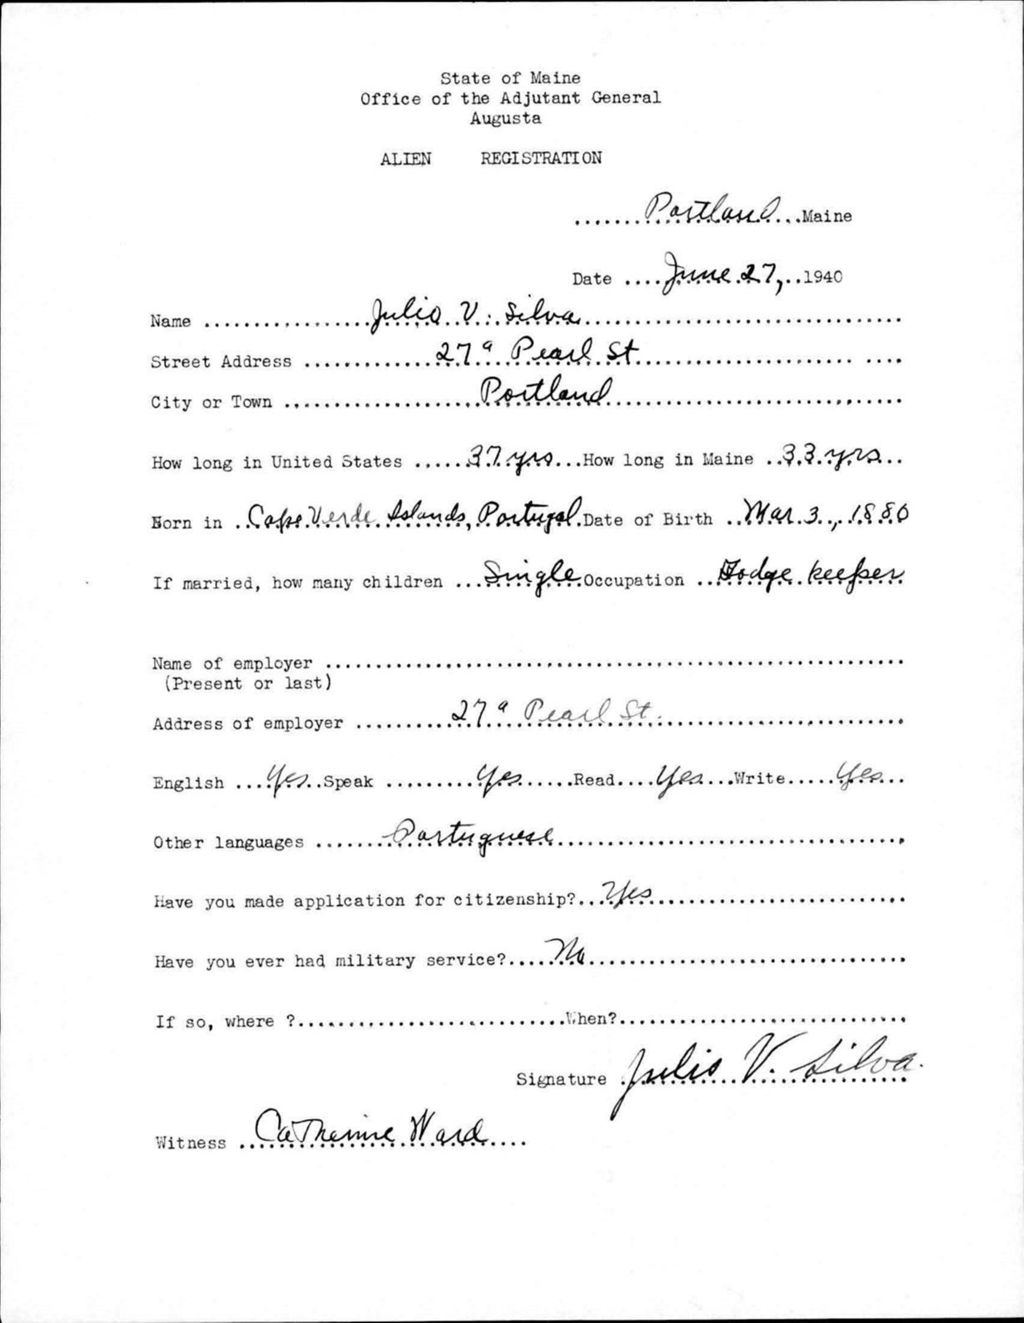 State of Maine
Office of the Adjutant General
Augusta
ALIEN REGISTRATION
.......Portland...Maine
Date ....June 27,..1940
Name .................Julio V. Silva.................................
Street Address .............27ª Pearl St......................... ....
City or Town ....................Portland..............................
How long in United States ......37 yrs...How long in Maine ..33 yrs..
Born in ..Cape Verde Islands, Portugal.Date of Birth ..Mar. 3., 1880
If married, how many children ...Single.Occupation ..Lodge keeper
Name of employer ............................................................
(Present or last)
Address of employer ..........27ª Pearl St..........................
English ....Yes..Speak .........Yes......Read....Yes...Write.....Yes...
Other languages ........Portuguese....................................
Have you made application for citizenship?...Yes..........................
Have you ever had military service?.....No.................................
If so, where ?............................When?..............................
Signature .Julio V. Silva.
Witness ..Catherine Ward....